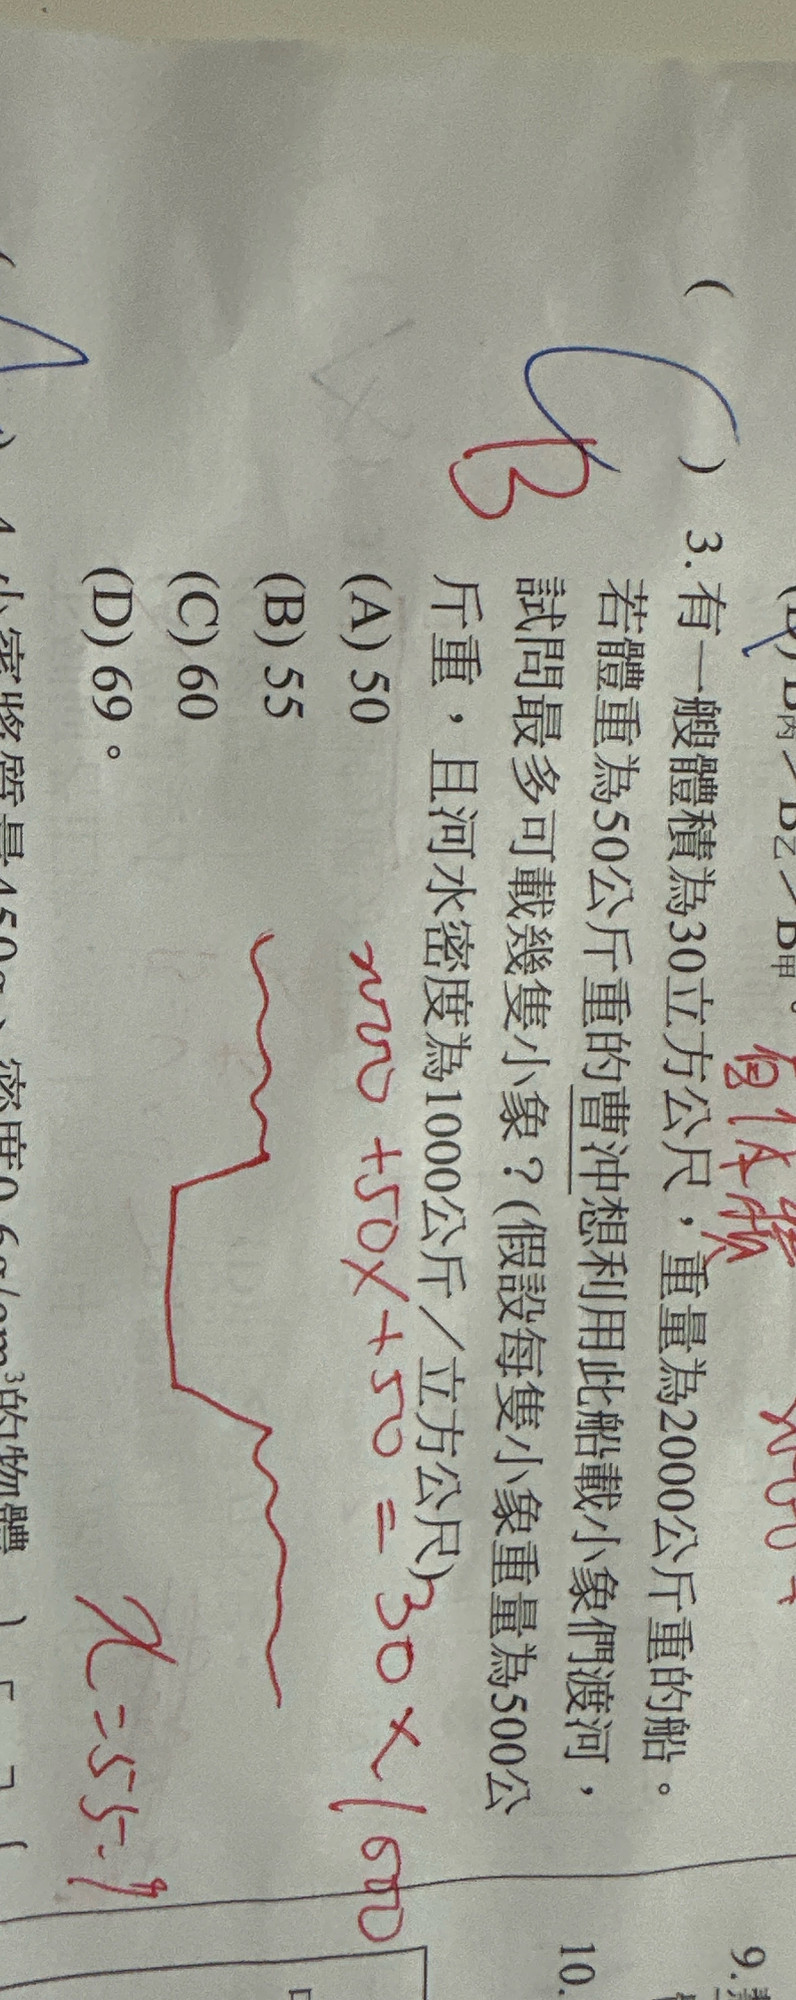 ( C ) 3. 有一艘體積為30立方公尺，重量為2000公斤重的船。
B
若體重為50公斤重的曹沖想利用此船載小象們渡河，
試問最多可載幾隻小象？(假設每隻小象重量為500公
斤重，且河水密度為1000公斤／立方公尺)
(A) 50
(B) 55
(C) 60
(D) 69。
+50X+50=30×1000
x=55.9
4. 小寀將質量450g、密度0.6g/cm³的物體
9.
10.